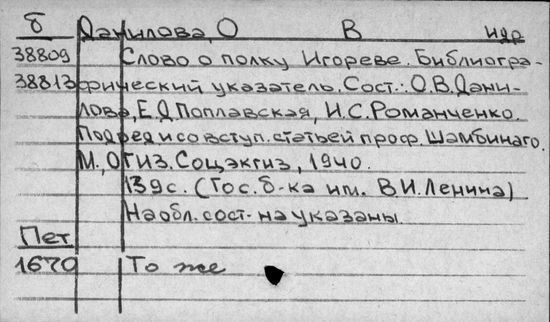 б Данилова, О В идр
38809 Слово о полку Игореве. Библиогра-
38813 фический указатель. Сост.: О.В.Дани-
лова, Е.Д.Поплавская, И.С.Романченко.
Под ред. и со вступ. статьей проф. Шамбинаго.
М., ОГИЗ. Соцэкгиз, 1940.
139с. (Гос. б-ка им. В.И.Ленина)
На обл. сост- на указаны.
Пет
1670 То же